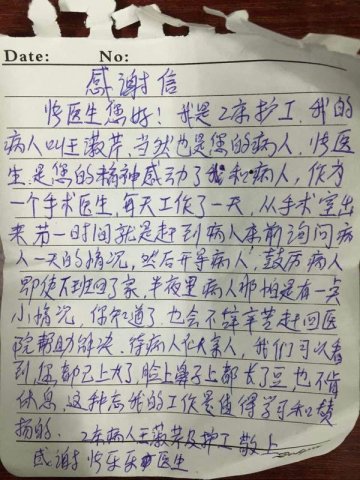 Date: No:
感谢信
佟医生您好！我是2床护工，我的
病人叫王淑芹，当然也是您的病人，佟医
生，是您的精神感动了我和病人，作为
一个手术医生，每天工作了一天，从手术室出
来第一时间就是赶到病人床前询问病
人一天的情况，然后开导病人，鼓励病人
即使下班回了家，半夜里病人那怕是有一点
小情况，你知道了也会不辞辛苦赶回医
院帮助解决，待病人似亲人，我们可以看
到您都已上火了，脸上鼻子上都长了豆，也不肯
休息，这种忘我的工作是值得学习和赞
扬的。2床病人王淑芹及护工敬上
感谢 乐 医生